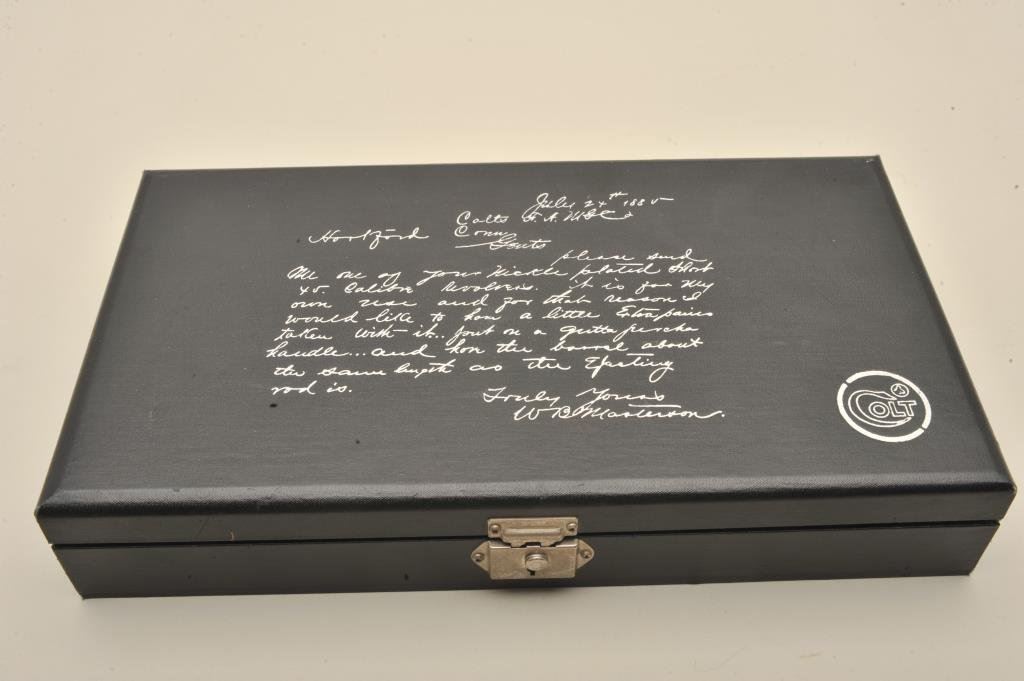 July 24th 1885
Colts F. A. Mfg Co
Hartford Conn
Gents
please send
Me one of your Nickle plated Short
45 Calibre Revolvers. it is for My
own use and for that reason I
would like to have a little Extra pains
taken with it.. put on a gutta percha
handle... and have the barrel about
the same length as the Ejecting
rod is.
Truly Yours
W B Masterson.
COLT